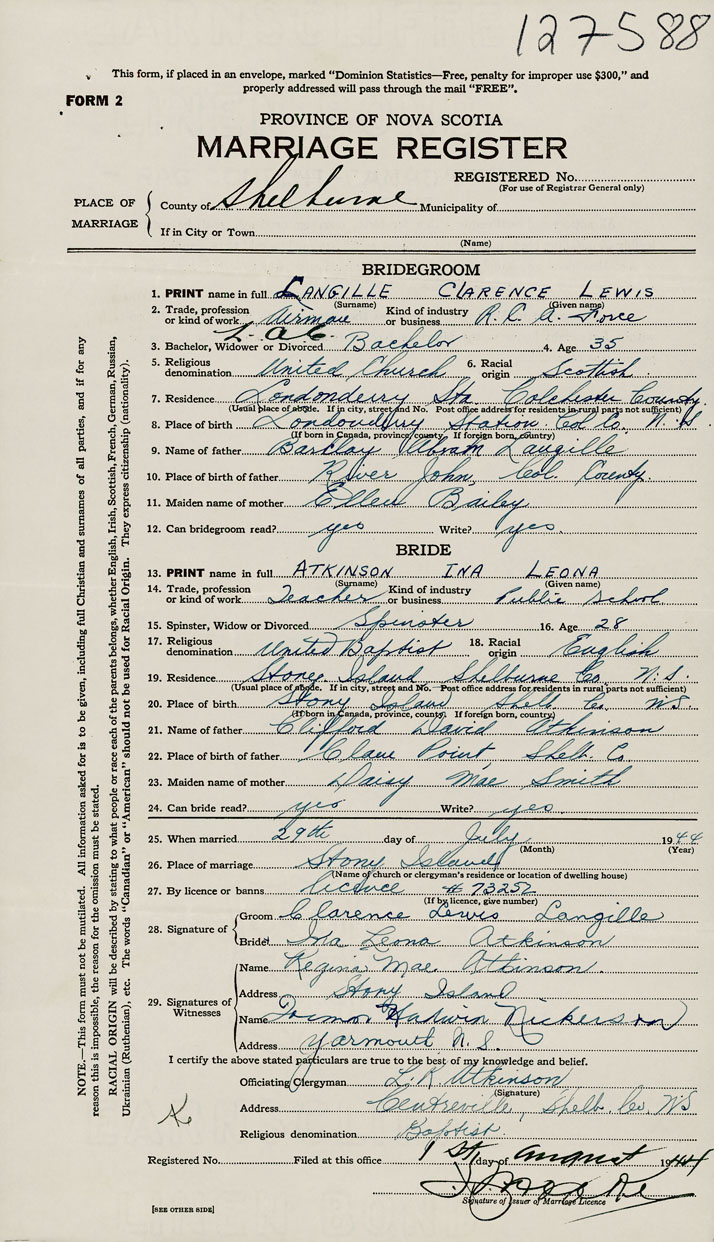 127588
This form, if placed in an envelope, marked "Dominion Statistics—Free, penalty for improper use $300," and
properly addressed will pass through the mail "FREE".
FORM 2
PROVINCE OF NOVA SCOTIA
MARRIAGE REGISTER
REGISTERED No.
(For use of Registrar General only)
PLACE OF MARRIAGE
County of Shelburne Municipality of
If in City or Town
(Name)
BRIDEGROOM
1. PRINT name in full LANGILLE CLARENCE LEWIS
(Surname) (Given name)
2. Trade, profession or kind of work Airman Kind of industry or business R.C.A. Force
L.A.C.
3. Bachelor, Widower or Divorced Bachelor 4. Age 35
5. Religious denomination United Church 6. Racial origin Scottish
7. Residence Londonderry Sta. Colchester County
(Usual place of abode. If in city, street and No. Post office address for residents in rural parts not sufficient)
8. Place of birth Londonderry Station Col. Co. N.S.
(If born in Canada, province, county. If foreign born, country)
9. Name of father Barclay Abram Langille
10. Place of birth of father River John, Col. County.
11. Maiden name of mother Ellen Bailey
12. Can bridegroom read? yes Write? yes.
BRIDE
13. PRINT name in full ATKINSON INA LEONA
(Surname) (Given name)
14. Trade, profession or kind of work Teacher Kind of industry or business Public School
15. Spinster, Widow or Divorced Spinster 16. Age 28
17. Religious denomination United Baptist 18. Racial origin English
19. Residence Stoney Island Shelburne Co. N.S.
(Usual place of abode. If in city, street and No. Post office address for residents in rural parts not sufficient)
20. Place of birth Stony Island Shelb. Co. N.S.
(If born in Canada, province, county. If foreign born, country)
21. Name of father Clifford David Atkinson
22. Place of birth of father Clam Point Shelb. Co
23. Maiden name of mother Daisy Mae Smith
24. Can bride read? yes Write? yes.
25. When married 29th day of July 1944
(Month) (Year)
26. Place of marriage Stony Island
(Name of church or clergyman's residence or location of dwelling house)
27. By licence or banns licence # 73252
(If by licence, give number)
28. Signature of
Groom Clarence Lewis Langille
Bride Ina Leona Atkinson
29. Signatures of Witnesses
Name Regina Mae Atkinson.
Address Stony Island
Name Hadwin Nickerson
Address Yarmouth N.S.
I certify the above stated particulars are true to the best of my knowledge and belief.
Officiating Clergyman L.R. Atkinson
(Signature)
Address Centreville, Shelb. Co. N.S
Religious denomination Baptist
Registered No. Filed at this office 1st day of August 1944
Signature of Issuer of Marriage Licence
[SEE OTHER SIDE]
NOTE.—This form must not be mutilated. All information asked for is to be given, including full Christian and surnames of all parties, and if for any
reason this is impossible, the reason for the omission must be stated.
RACIAL ORIGIN will be described by stating to what people or race each of the parents belongs, whether English, Irish, Scottish, French, German, Russian,
Ukrainian (Ruthenian), etc. The words "Canadian" or "American" should not be used for Racial Origin. They express citizenship (nationality).